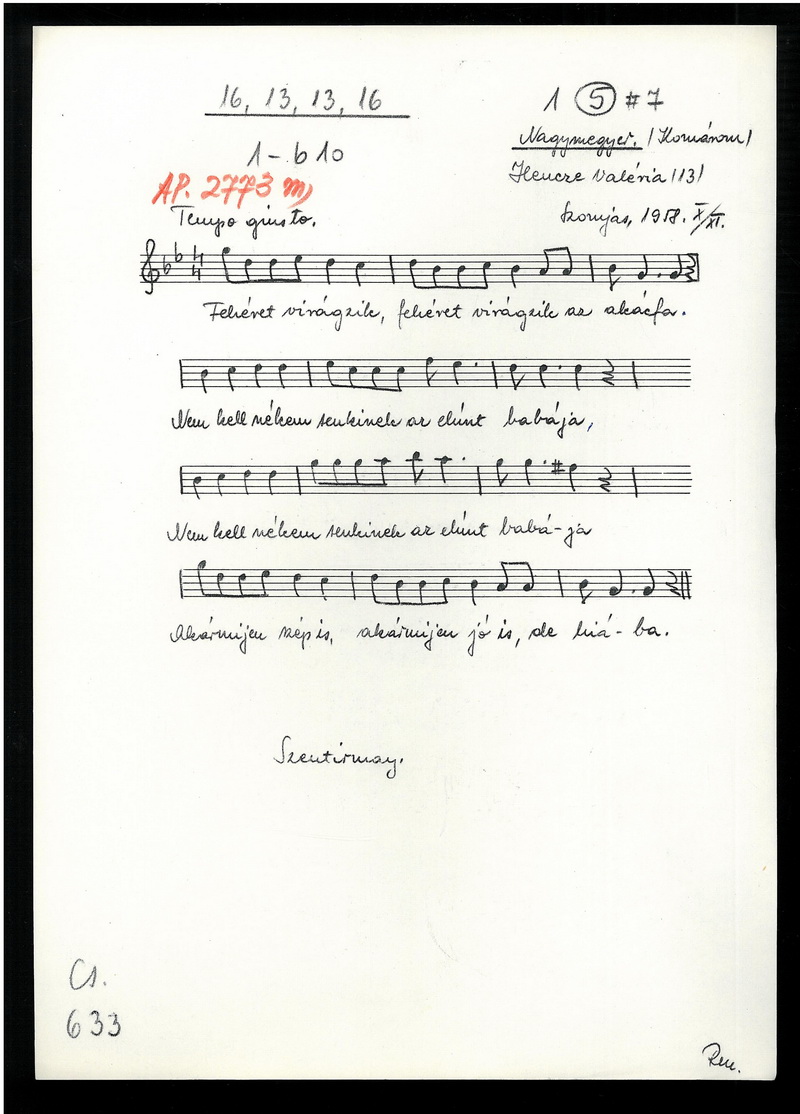 16, 13, 13, 16
1 5 #7
1 - b10
Nagymegyer. (Komárom)
AP. 2773 m)
Hencze Valéria (13)
Tempo giusto.
Szomjas, 1958. X/XI.
4
4
Fehéret virágzik, fehéret virágzik az akácfa.
Nem kell nékem senkinek az elúnt babája,
Nem kell nékem senkinek az elúnt babá-ja
Akármijen szép is, akármijen jó is, de hiá-ba.
Szentirmay.
Cs.
633